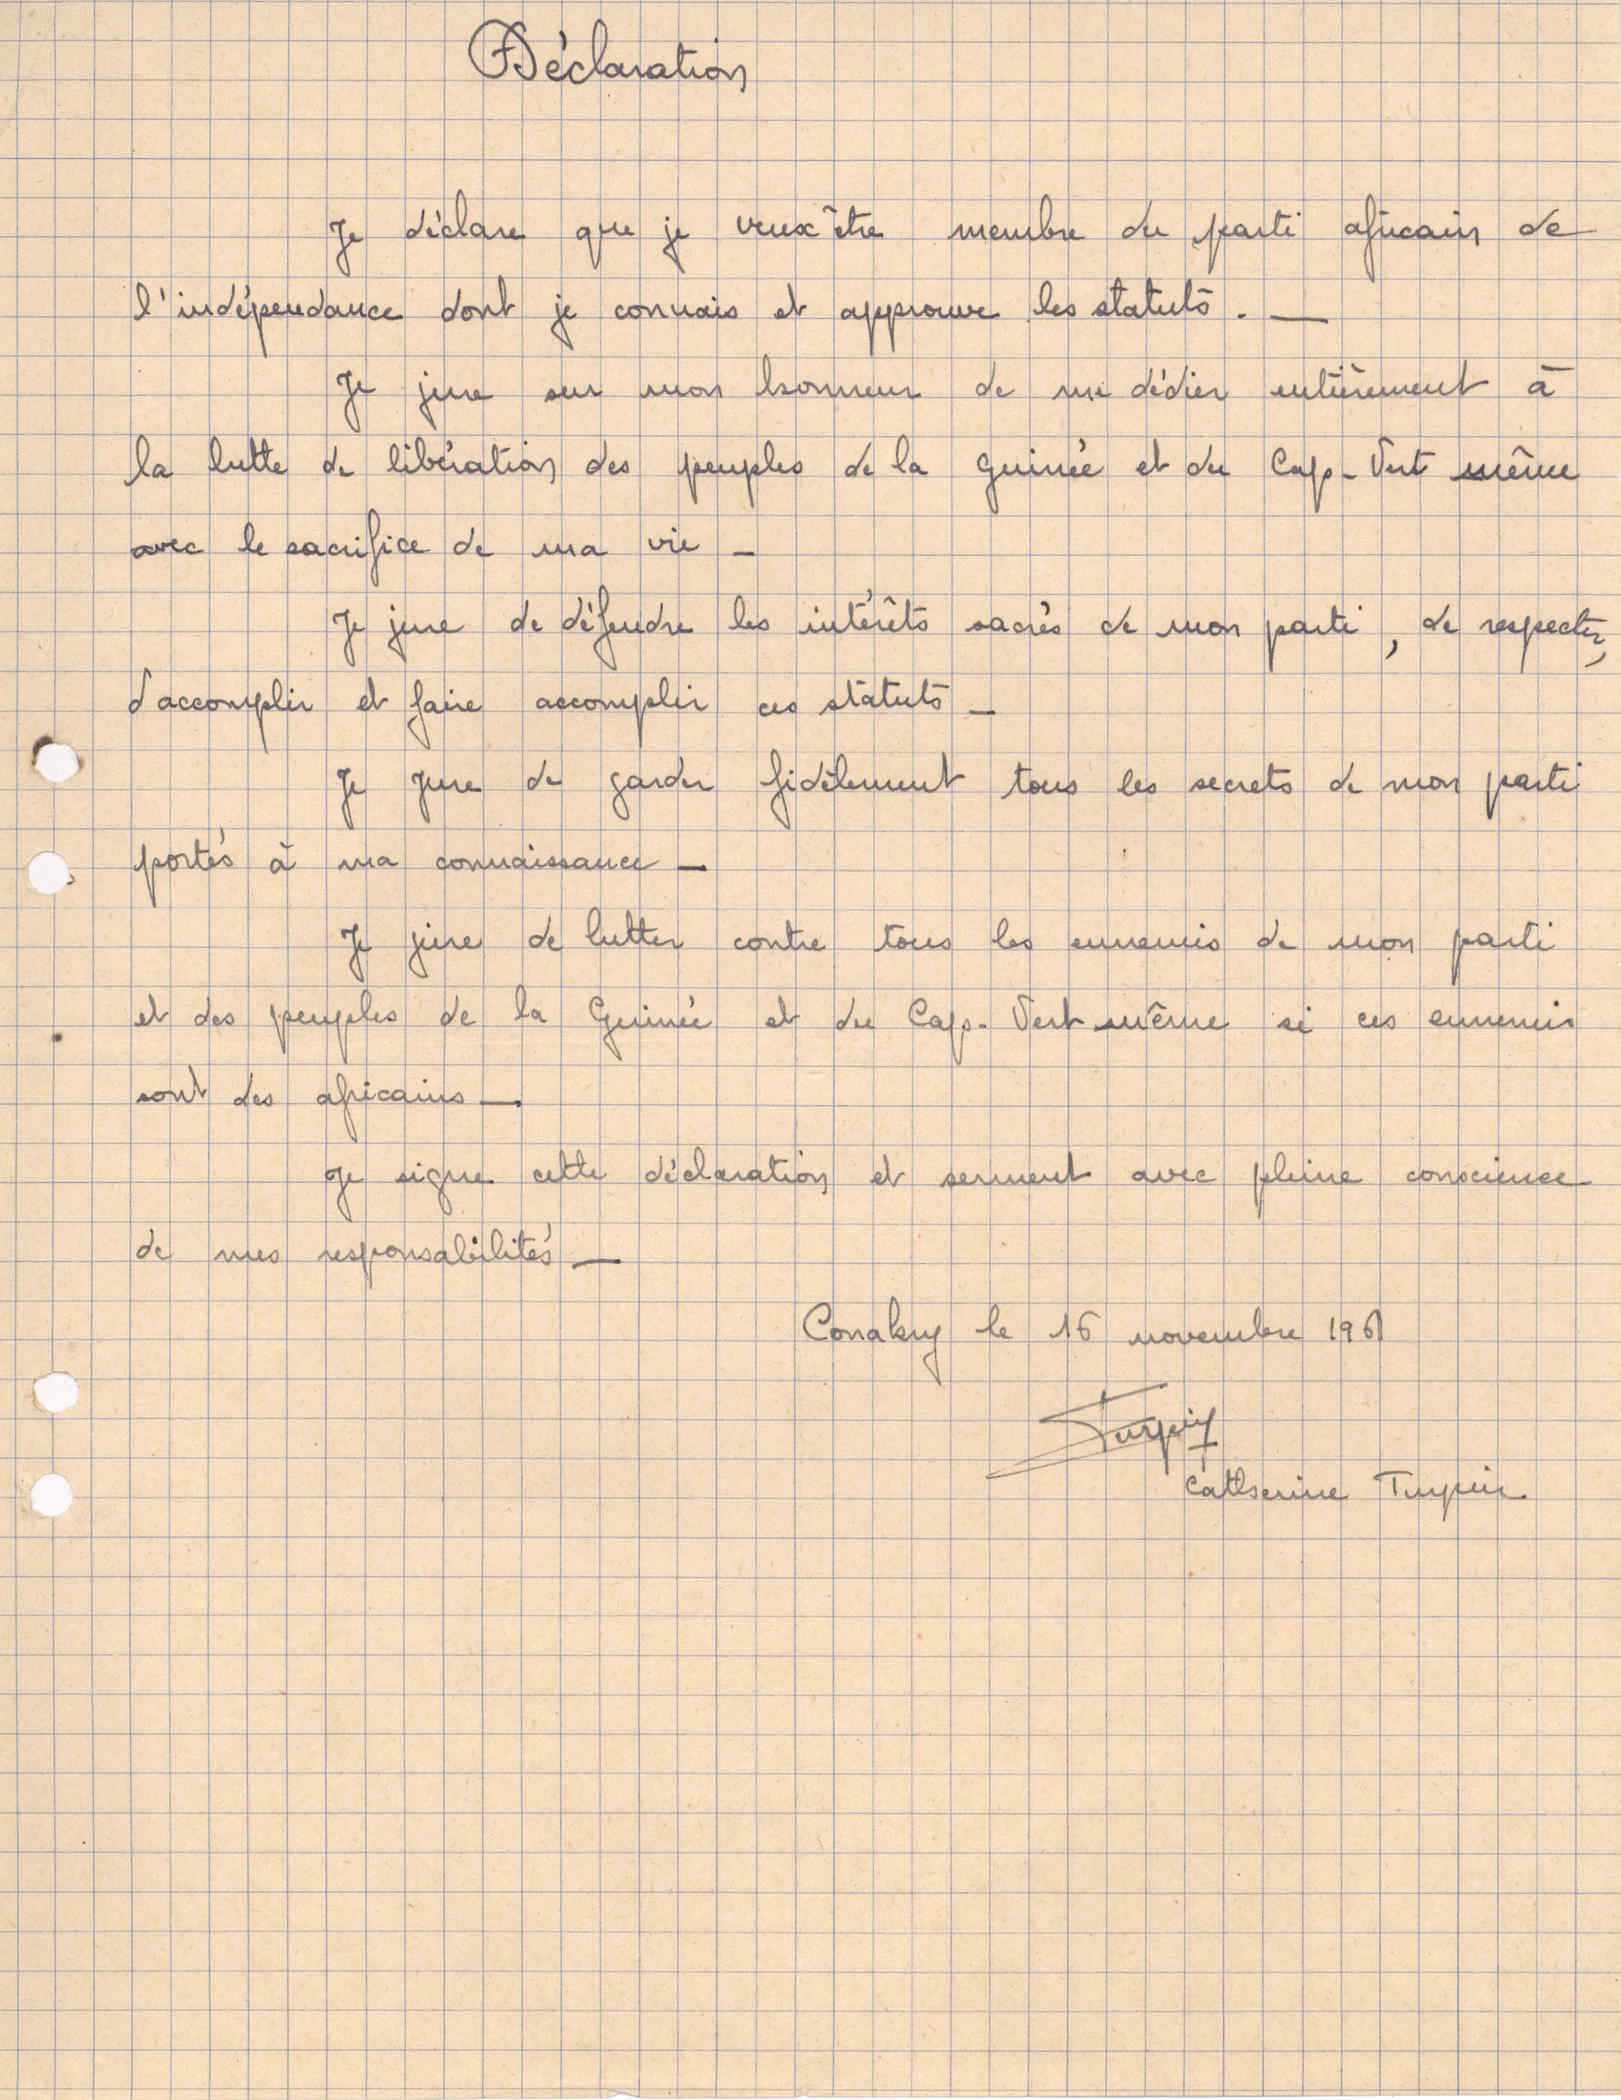 Déclaration
Je déclare que je veux être membre du parti africain de
l'indépendance dont je connais et approuve les statuts. —
Je jure sur mon honneur de me dédier entièrement à
la lutte de libération des peuples de la Guinée et du Cap-Vert même
avec le sacrifice de ma vie —
Je jure de défendre les intérêts sacrés de mon parti, de respecter,
d'accomplir et faire accomplir ces statuts —
Je jure de garder fidèlement tous les secrets de mon parti
portés à ma connaissance —
Je jure de lutter contre tous les ennemis de mon parti
et des peuples de la Guinée et du Cap-Vert même si ces ennemis
sont des africains —
Je signe cette déclaration et serment avec pleine conscience
de mes responsabilités —
Conakry le 16 novembre 1961
Turpin
Catherine Turpin